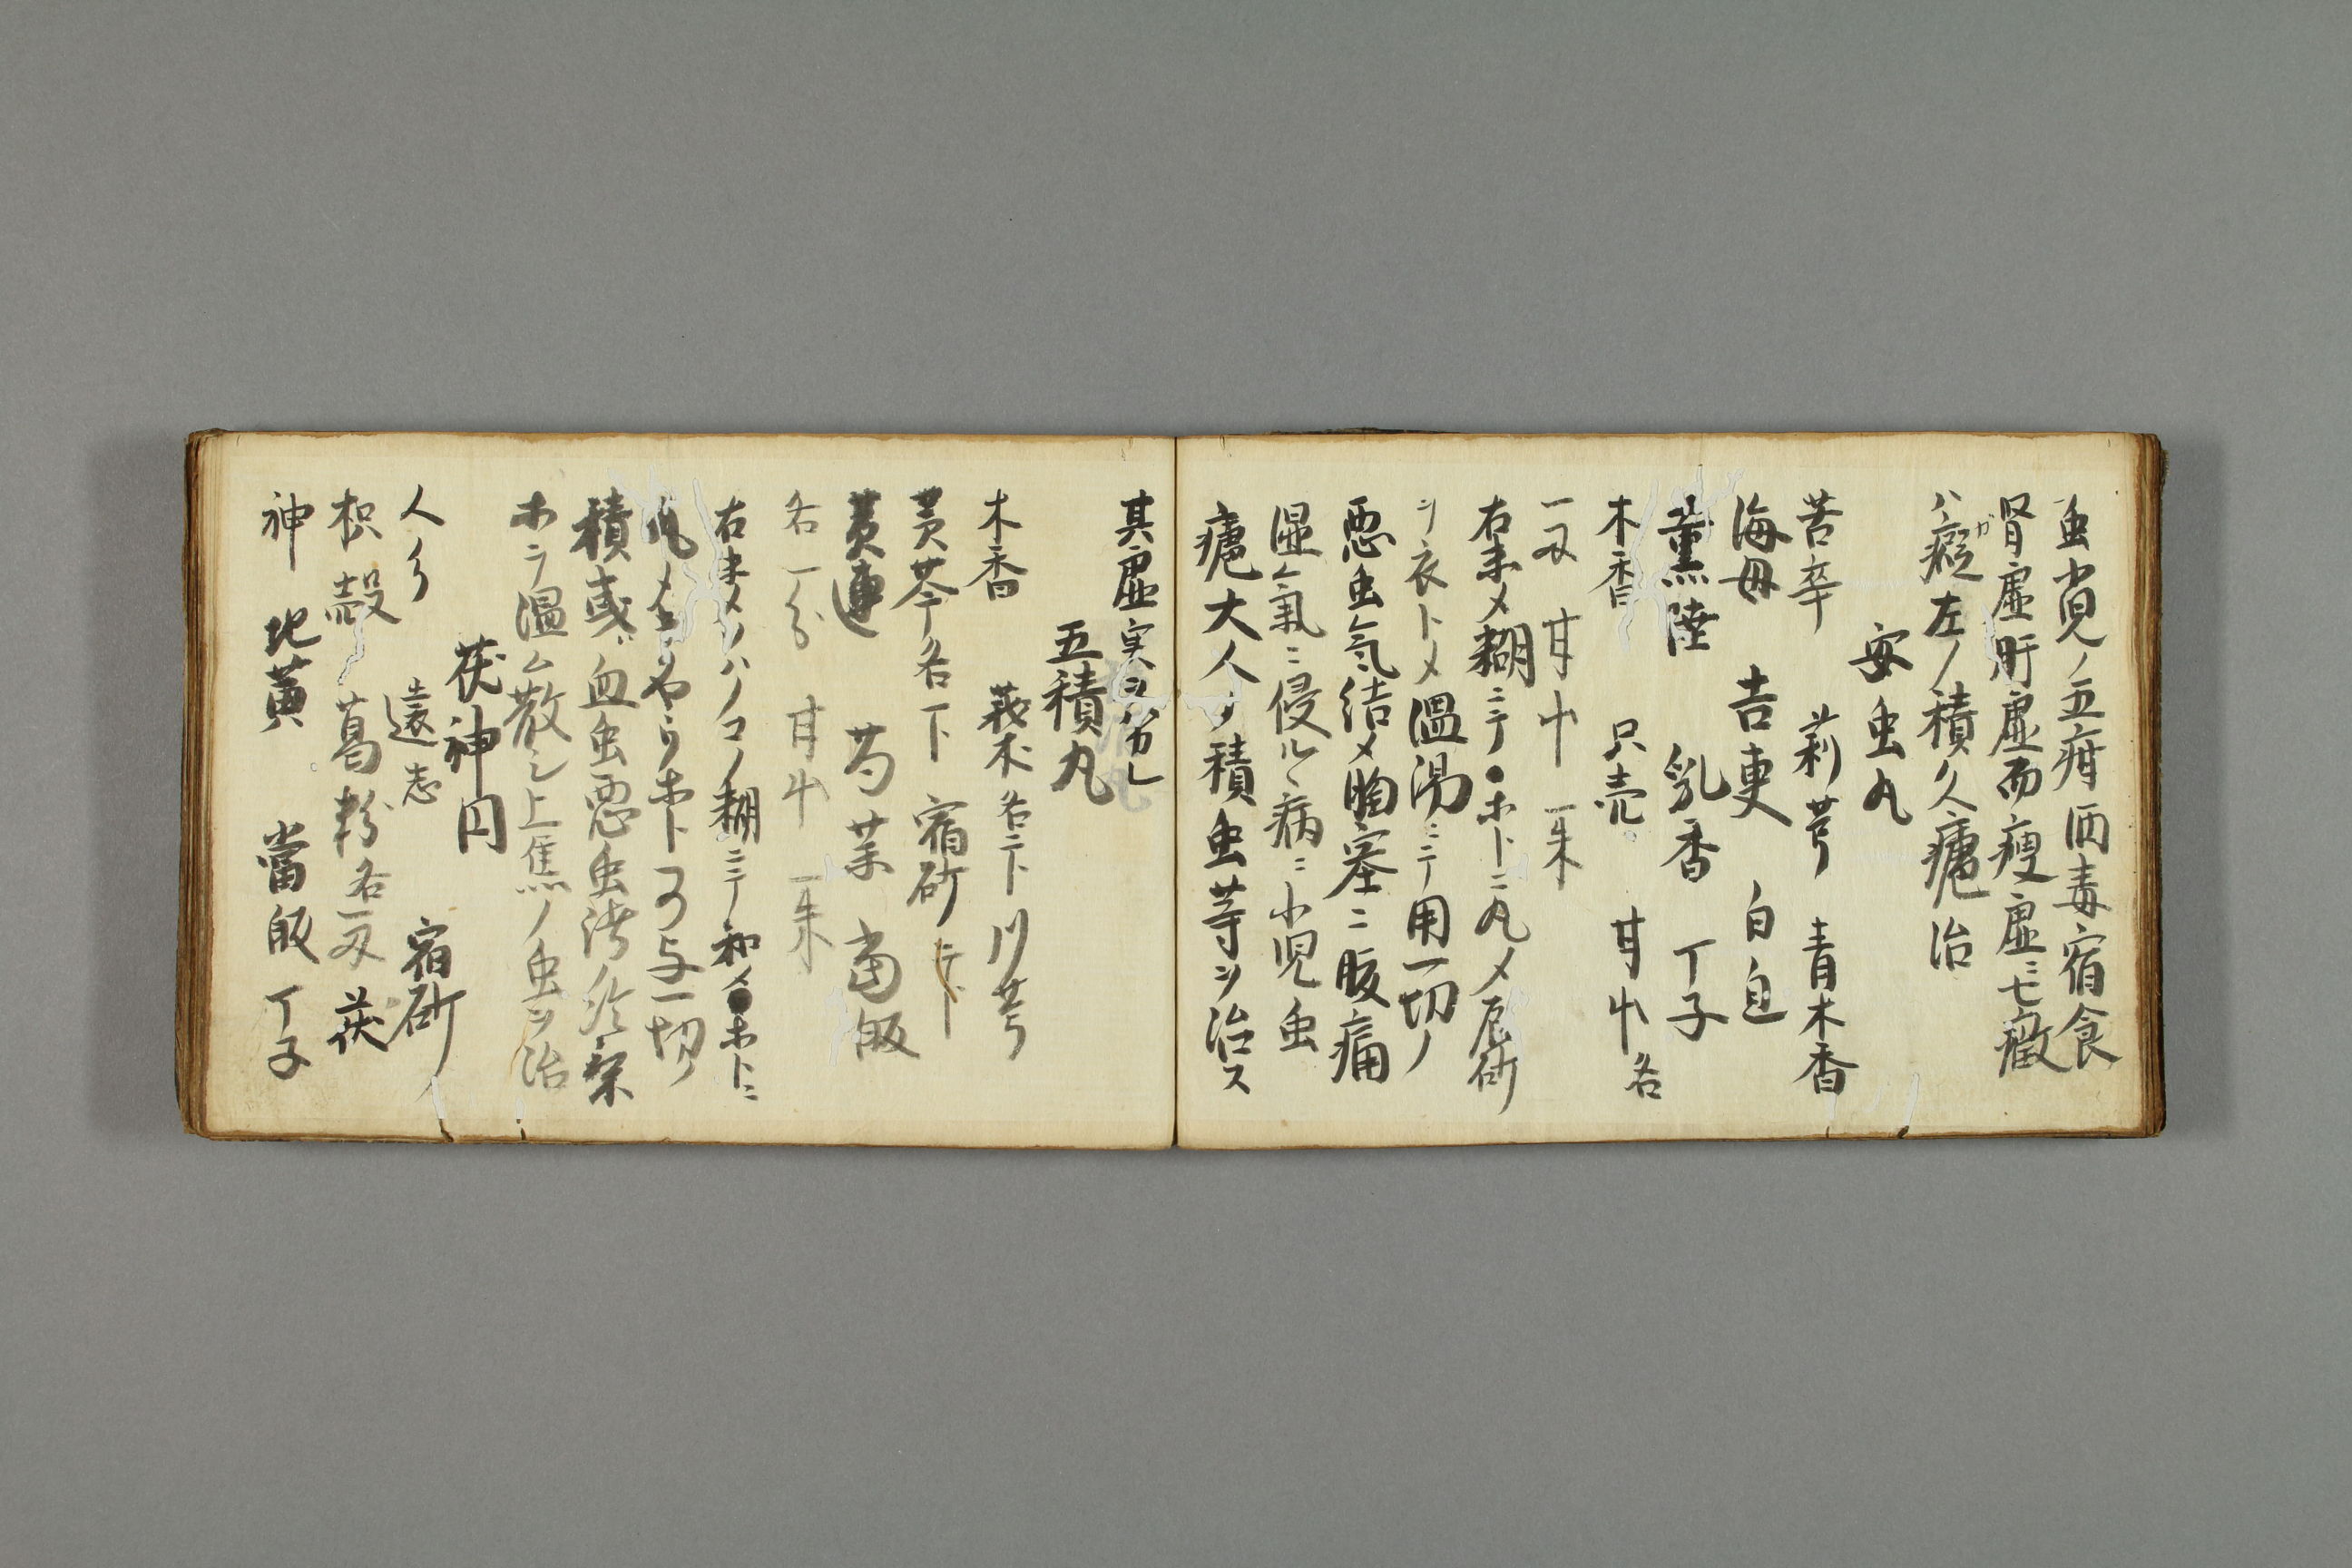 虫積ノ五疳酒毒宿食
腎虚肝虚而痩虚ニモ癥
ハ癡ガ左ノ積久瘧治
安虫丸
苦辛 莉芎 青木香
海毋 吉更 白自
薫陸 乳香 丁子
木香 只売 甘中各
一又 甘中 一朱
右末メ糊ニテ●ホトニ丸メ辰砂
ヲ衣トメ温湯ニテ用一切ノ
悪虫気結メ胸塞ニ腹痛
湿氣ニ侵ルヽ病ニ小児虫
瘧大人ノ積虫等ヲ治ス
其虚実ヲ分レ
五積丸
木香 莪朮各二下 川芎
黄芩各一下 宿砂二下
黄連 芍薬 當皈
各一分 甘中 一朱
右末メソハノコノ糊ニテ和メ●ホトニ
丸メ 可与一切ノ
積或ハ血虫悪虫
ホラ温ム散シ上焦ノ虫ヲ治
茯神円
人 遠志 宿砂
枳殻 葛粉各一又 茯
神 地黄 當皈 丁子